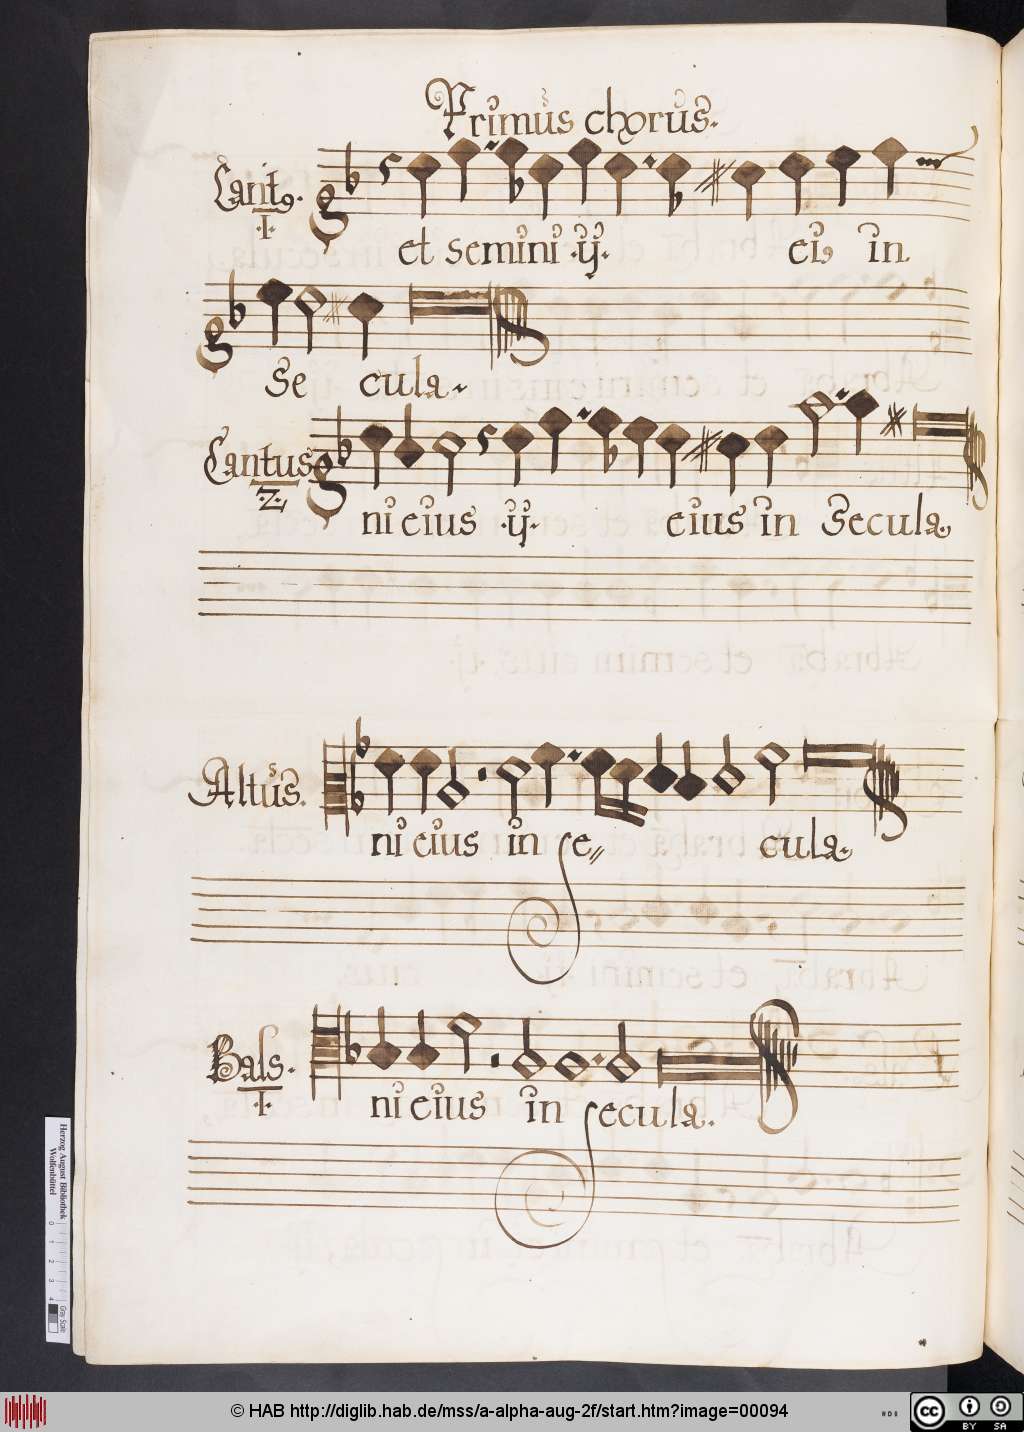 Primus chorus.
Cant9.
.I.
et semini .ij. ei9 in
se cula.
Cantus
.2.
ni eius .ij. eius in Secula.
Altus.
ni eius in se„ cula.
Bass.
.I.
ni eius in secula.
Herzog August Bibliothek
Wolfenbüttel
0 1 2 3 4
Gray Scale
© HAB http://diglib.hab.de/mss/a-alpha-aug-2f/start.htm?image=00094
cc BY SA